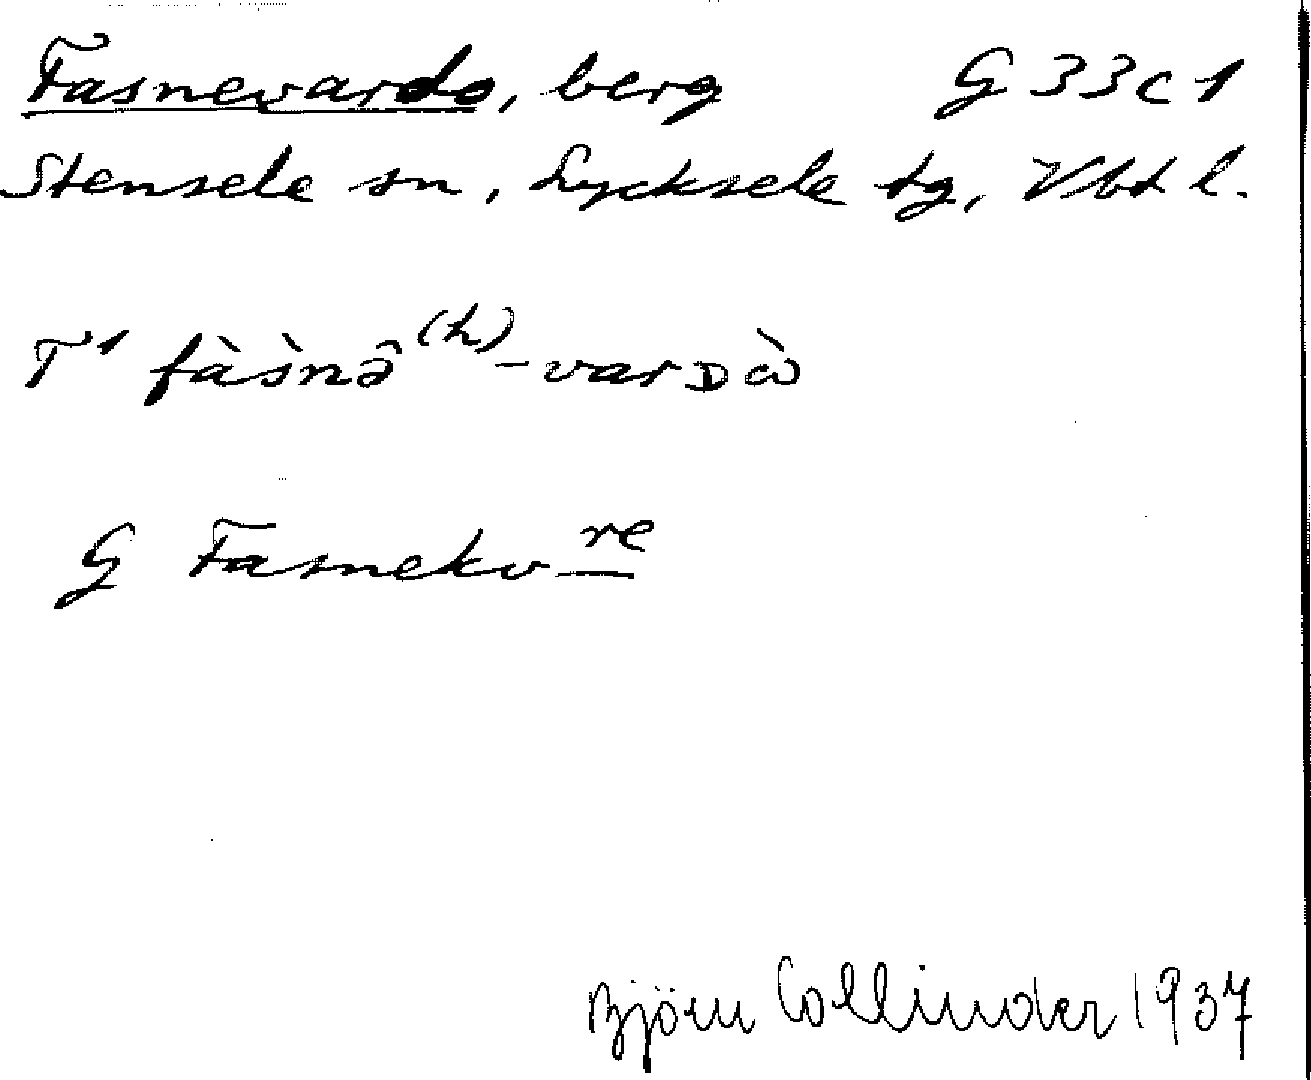 Fasnevardo, berg G 33c1
Stensele sn, Lycksele tg, Vbtl.
T¹ fàs̀nə̂⁽ʰ⁾-varᴅὼ
G Fasnekv re
Björn Collinder 1937